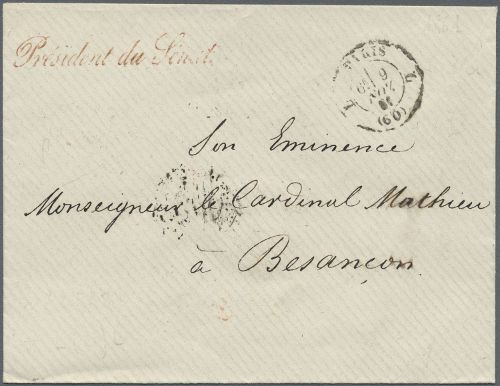 Président du Sénat.
PARIS
9
NOV.
(60)
Son Eminence
Monseigneur le Cardinal Mathieu
à Besançon.